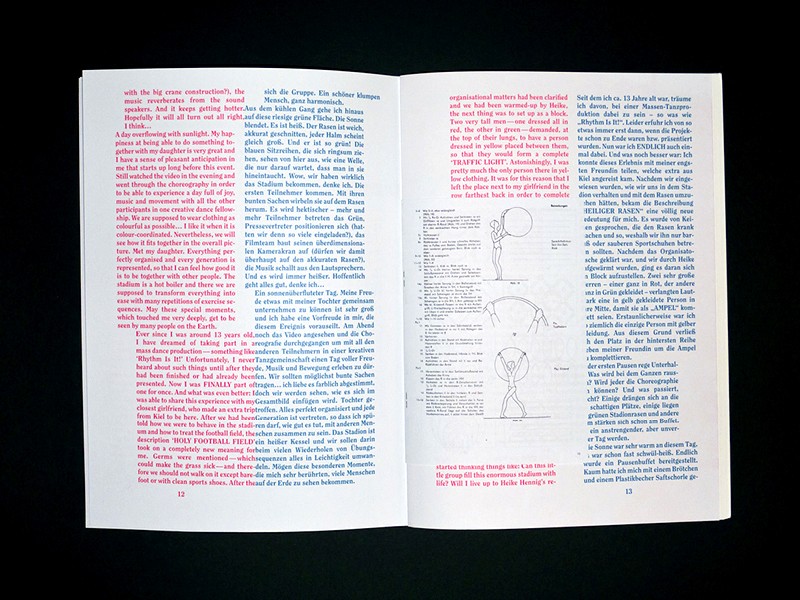 with the big crane construction?), the
music reverberates from the sound
speakers. And it keeps getting hotter.
Hopefully it will all turn out all right,
I think...
A day overflowing with sunlight. My hap-
piness at being able to do something to-
gether with my daughter is very great and
I have a sense of pleasant anticipation in
me that starts up long before this event.
Still watched the video in the evening and
went through the choreography in order
to be able to experience a day full of joy,
music and movement with all the other
participants in one creative dance fellow-
ship. We are supposed to wear clothing as
colourful as possible... I like it when it is
colour-coordinated. Nevertheless, we will
see how it fits together in the overall pic-
ture. Met my daughter. Everything per-
fectly organised and every generation is
represented, so that I can feel how good it
is to be together with other people. The
stadium is a hot boiler and there we are
supposed to transform everything into
ease with many repetitions of exercise se-
quences. May these special moments,
which touched me very deeply, get to be
seen by many people on the Earth.
Ever since I was around 13 years old,
I have dreamed of taking part in a
mass dance production — something like
"Rhythm Is It!" Unfortunately, I never
heard about such things until after they
had been finished or had already been
presented. Now I was FINALLY part of
one for once. And what was even better: I
was able to share this experience with my
closest girlfriend, who made an extra trip
from Kiel to be here. After we had been
told how we were to behave in the stadi-
um and how to treat the football field, the
description 'HOLY FOOTBALL FIELD'
took on a completely new meaning for
me. Germs were mentioned — which
could make the grass sick — and there-
fore we should not walk on it except bare-
foot or with clean sports shoes. After the
12
sich die Gruppe. Ein schöner klumpen
Mensch, ganz harmonisch.
Aus dem kühlen Gang gehe ich hinaus
auf diese riesige grüne Fläche. Die Sonne
blendet. Es ist heiß. Der Rasen ist weich,
akkurat geschnitten, jeder Halm scheint
gleich groß. Und er ist so grün! Die
blauen Sitzreihen, die sich ringsum zie-
hen, sehen von hier aus, wie eine Welle,
die nur darauf wartet, dass man in sie
hineintaucht. Wow, wir haben wirklich
das Stadium bekommen, denke ich. Die
ersten Teilnehmer kommen. Mit ihren
bunten Sachen wirbeln sie auf dem Rasen
herum. Es wird hektischer – mehr und
mehr Teilnehmer betreten das Grün,
Pressevertreter positionieren sich (hat-
ten wir denn so viele eingeladen?), das
Filmteam baut seinen überdimensiona-
len Kamerakran auf (dürfen wir damit
überhaupt auf den akkuraten Rasen?),
die Musik schallt aus den Lautsprechern.
Und es wird immer heißer. Hoffentlich
geht alles gut, denke ich...
Ein sonnenüberfluteter Tag. Meine Freu-
de etwas mit meiner Tochter gemeinsam
unternehmen zu können ist sehr groß
und ich habe eine Vorfreude in mir, die
diesem Ereignis vorauseilt. Am Abend
noch das Video angesehen und die Cho-
reografie durchgegangen um mit all den
anderen Teilnehmern in einer kreativen
Tanzgemeinschaft einen Tag voller Freu-
de, Musik und Bewegung erleben zu dür-
fen. Wir sollten möglichst bunte Sachen
tragen... ich liebe es farblich abgestimmt,
doch wir werden sehen, wie es sich im
Gesamtbild einfügen wird. Tochter ge-
troffen. Alles perfekt organisiert und jede
Generation ist vertreten, so dass ich spü-
ren darf, wie gut es tut, mit anderen Men-
schen zusammen zu sein. Das Stadion ist
ein heißer Kessel und wir sollen darin
beim vielen Wiederholen von Übungs-
sequenzen alles in Leichtigkeit umwan-
deln. Mögen diese besonderen Momente,
die mich sehr berührten, viele Menschen
auf der Erde zu sehen bekommen.
organisational matters had been clarified
and we had been warmed-up by Heike,
the next thing was to set up as a block.
Two very tall men — one dressed all in
red, the other in green — demanded, at
the top of their lungs, to have a person
dressed in yellow placed between them,
so that they would form a complete
'TRAFFIC LIGHT'. Astonishingly, I was
pretty much the only person there in yel-
low clothing. It was for this reason that I
left the place next to my girlfriend in the
row farthest back in order to complete
started thinking things like: Can this lit-
tle group fill this enormous stadium with
life? Will I live up to Heike Hennig's re-
Seit dem ich ca. 13 Jahre alt war, träume
ich davon, bei einer Massen-Tanzpro-
duktion dabei zu sein – so was wie
„Rhythm Is It!". Leider erfuhr ich von so
etwas immer erst dann, wenn die Projek-
te schon zu Ende waren bzw. präsentiert
wurden. Nun war ich ENDLICH auch ein-
mal dabei. Und was noch besser war: Ich
konnte dieses Erlebnis mit meiner eng-
ten Freundin teilen, welche extra aus
Kiel angereist kam. Nachdem wir einge-
wiesen wurden, wie wir uns in dem Sta-
dion verhalten und mit dem Rasen umzu-
hätten, bekam die Beschreibung
HEILIGER RASEN" eine völlig neue
deutung für mich. Es wurde von Kei-
gesprochen, die den Rasen krank
achen und so, weshalb wir ihn nur bar-
ß oder sauberen Sportschuhen betre-
sollten. Nachdem das Organisato-
sche geklärt war, und wir durch Heike
ufgewärmt wurden, ging es daran sich
Block aufzustellen. Zwei sehr große
erren – einer ganz in Rot, der andere
nz in Grün gekleidet – verlangten Laut-
ark eine in gelb gekleidete Person in
re Mitte, damit sie als „AMPEL" kom-
ett seien. Erstaunlicherweise war ich
ziemlich die einzige Person mit gelber
leidung. Aus diesem Grund verließ
h den Platz in der hintersten Reihe
ben meiner Freundin um die Ampel
komplettieren.
der ersten Pausen rege Unterhal-
Was wird bei dem Ganzen raus-
? Wird jeder die Choreographie
können? Und was passiert,
cht? Einige drängen sich an die
schattigen Plätze, einige liegen
grünen Stadionrasen und andere
m stärken sich schon am Buffet.
ein anstrengender, aber unver-
er Tag werden.
e Sonne war sehr warm an diesem Tag,
war schon fast schwül-heiß. Endlich
wurde ein Pausenbuffet bereitgestellt.
Kaum hatte ich mich mit einem Brötchen
und einem Plastikbecher Saftschorle ge-
13